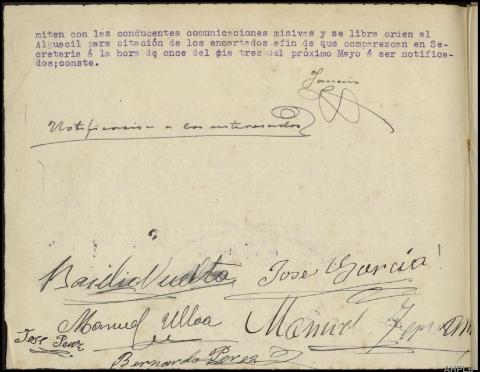 miten con las conducentes comunicaciones misivas y se libra orden al
Alguacil para citación de los encartados afin de que comparezcan en Se-
cretaria á la hora de once del dia tres del próximo Mayo á ser notifica-
dos;conste.
Notificacion a los interesados
Basilio Vuelta
Jose Garcia
Manuel Ulloa
Manuel
Jose Perez
Bernardo Perez